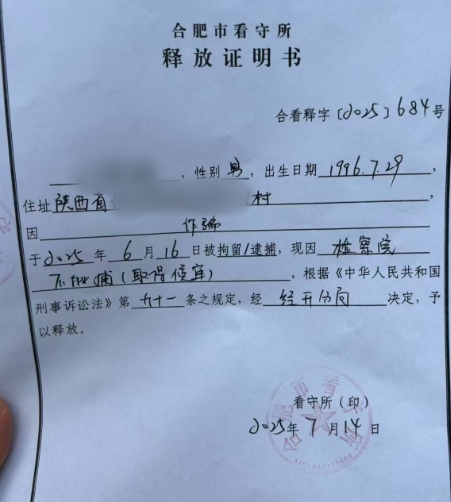 合肥市看守所
释放证明书
合看释字〔2025〕684号
,性别 男 ,出生日期 1996.7.29 ,
住址 陕西省 村 ,
因 诈骗
于 2025 年 6 月 16 日被拘留/逮捕,现因 检察院
不批捕(取保候审) ,根据《中华人民共和国
刑事诉讼法》第 九十一 条之规定,经 经开分局 决定,予
以释放。
看守所(印)
2025年 7 月 14 日